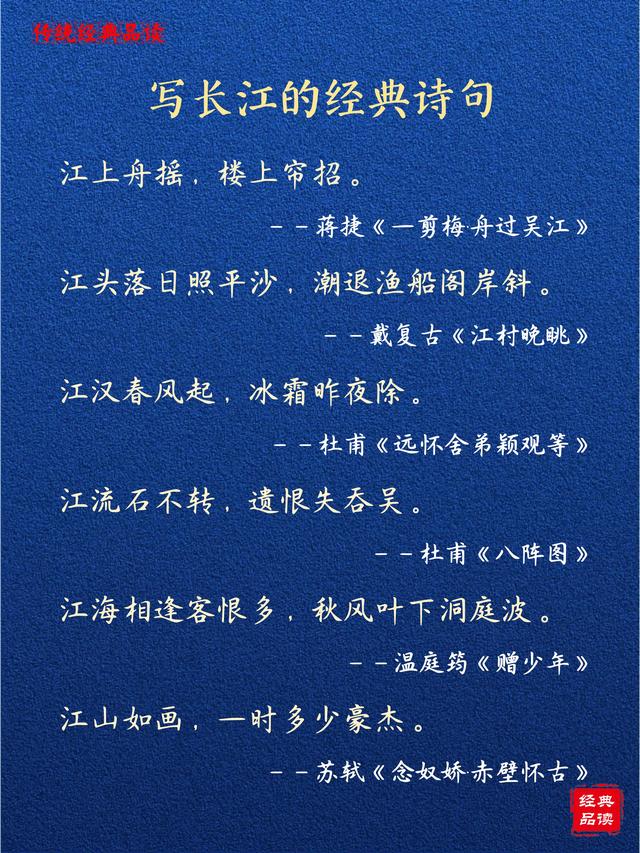 传统经典品读
写长江的经典诗句
江上舟摇，楼上帘招。
--蒋捷《一剪梅·舟过吴江》
江头落日照平沙，潮退渔船阁岸斜。
--戴复古《江村晚眺》
江汉春风起，冰霜昨夜除。
--杜甫《远怀舍弟颖观等》
江流石不转，遗恨失吞吴。
--杜甫《八阵图》
江海相逢客恨多，秋风叶下洞庭波。
--温庭筠《赠少年》
江山如画，一时多少豪杰。
--苏轼《念奴娇·赤壁怀古》
经典
品读